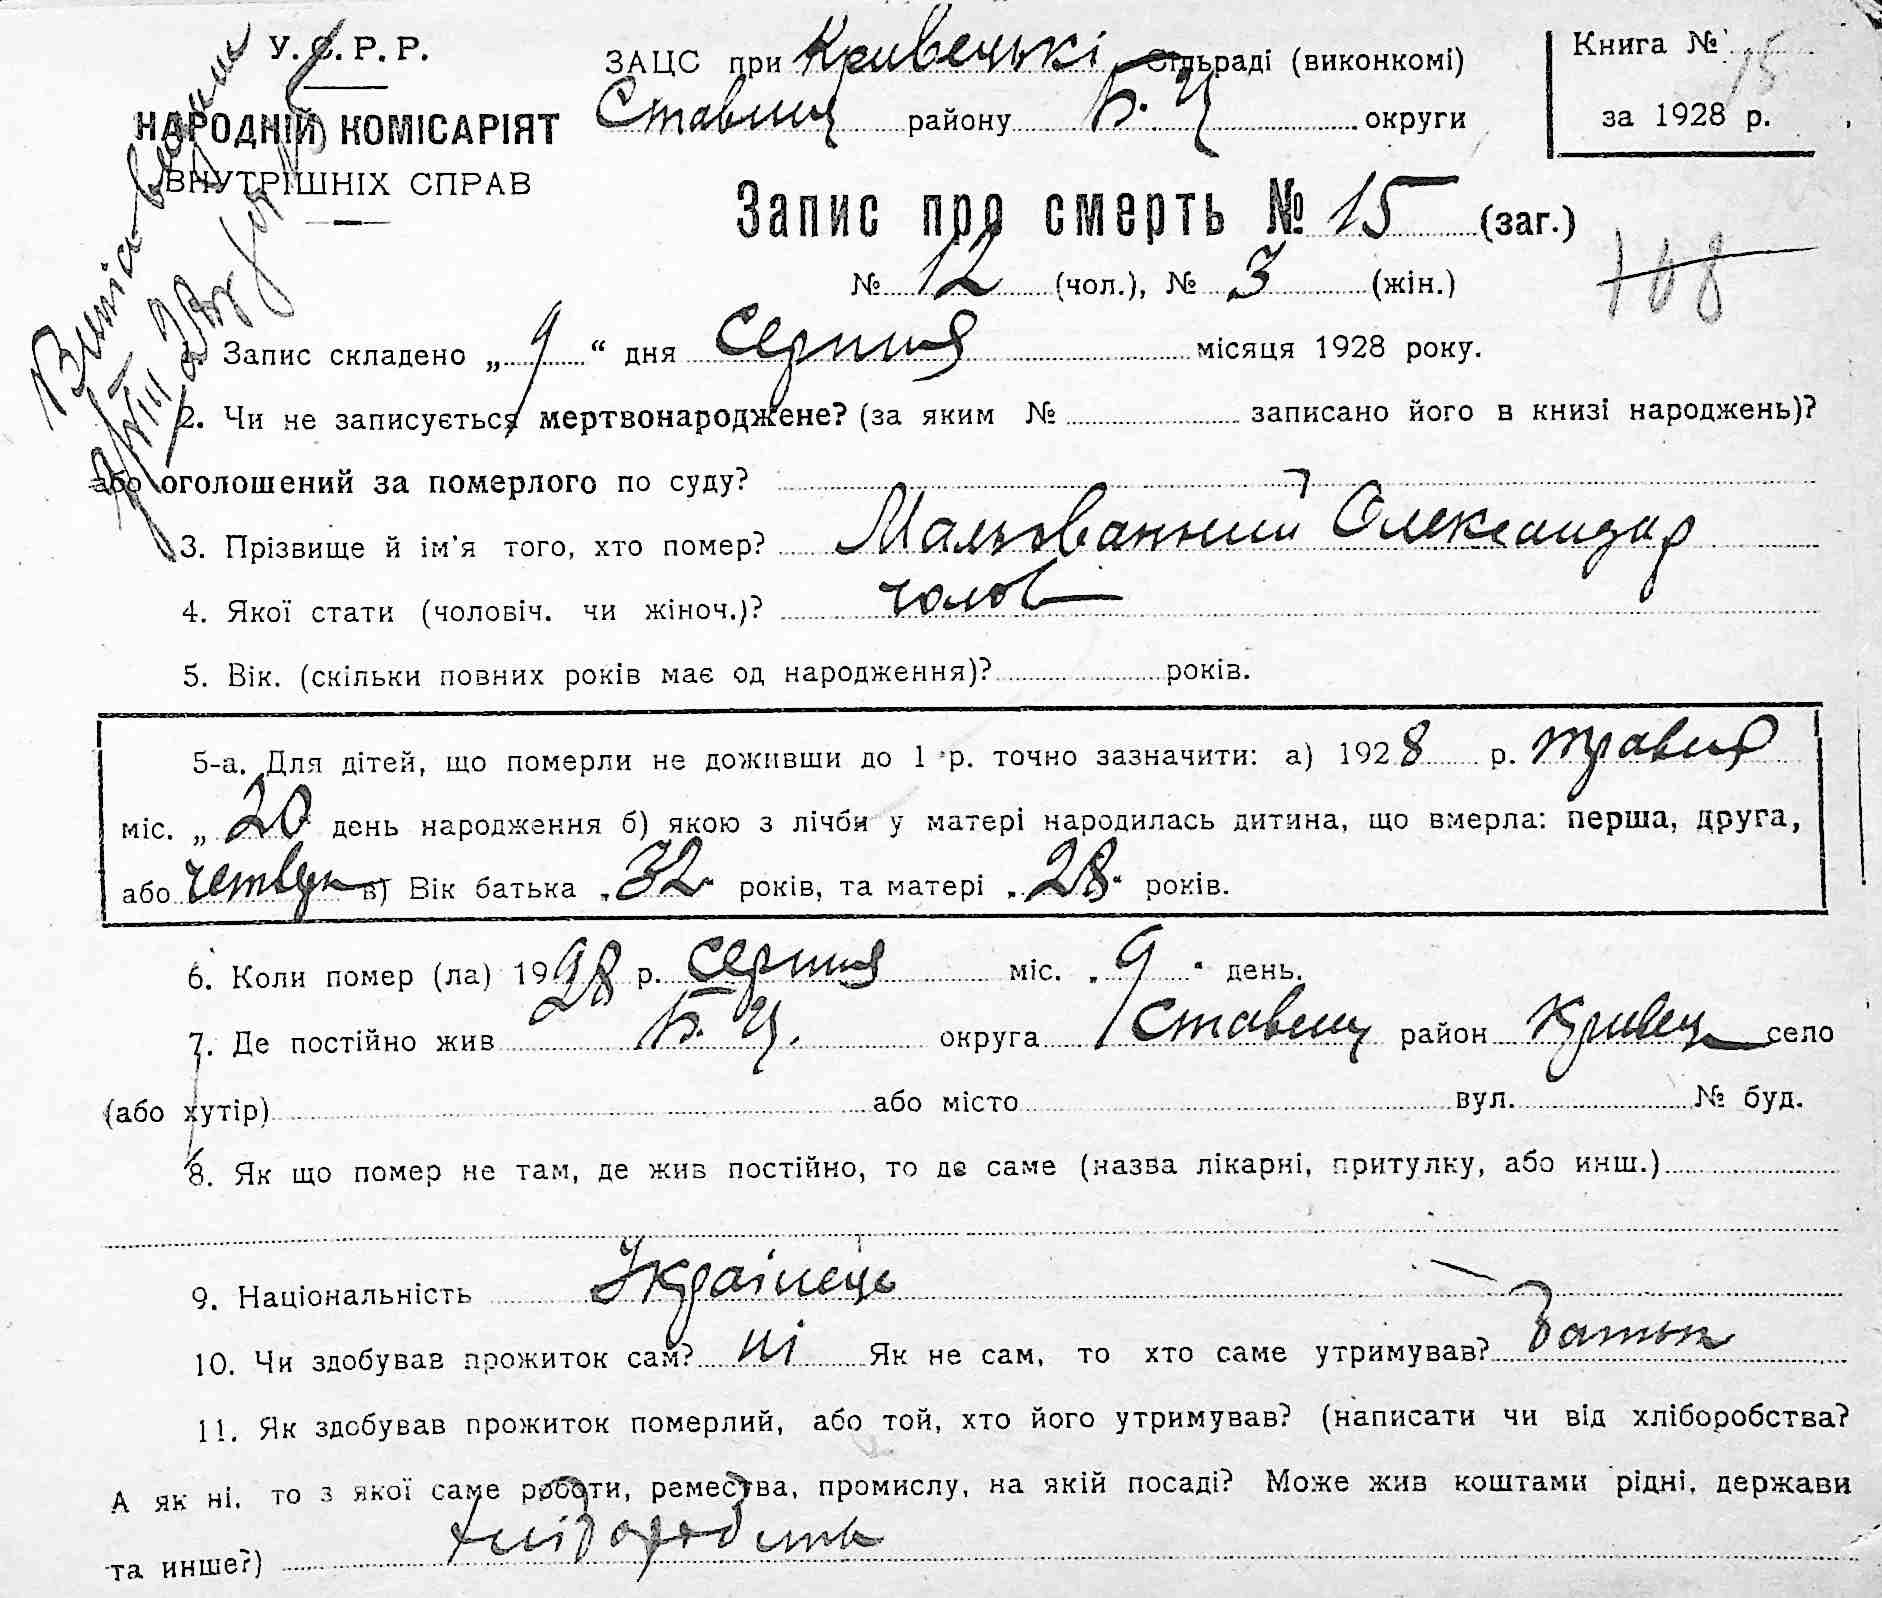 У.С.Р.Р.
НАРОДНІЙ КОМІСАРІЯТ
ВНУТРІШНІХ СПРАВ
ЗАЦС при Кривецькі Сільраді (виконкомі)
Ставищ району Б. Ц округи
Книга № 15
за 1928 р.
Запис про смерть № 15 (заг.)
№ 12 (чол.), № 3 (жін.)
108
1. Запис складено „ 9 “ дня серпня місяця 1928 року.
2. Чи не записується мертвонароджене? (за яким № записано його в книзі народжень)?
або оголошений за померлого по суду?
3. Прізвище й ім'я того, хто помер? Мальованний Олександр
4. Якої стати (чоловіч. чи жіноч.)? чолов
5. Вік. (скільки повних років має од народження)? років.
5-а. Для дітей, що померли не доживши до 1 р. точно зазначити: а) 1928 р. травня
міс. „ 20 день народження б) якою з лічби у матері народилась дитина, що вмерла: перша, друга,
або четверт в) Вік батька „ 32 “ років, та матері „ 28 “ років.
6. Коли помер (ла) 1928 р. серпня міс. „ 9 “ день.
7. Де постійно жив Б. Ц. округа Ставищ район Кривец село
(або хутір) або місто вул. № буд.
8. Як що помер не там, де жив постійно, то де саме (назва лікарні, притулку, або инш.)
9. Національність Українець
10. Чи здобував прожиток сам? ні Як не сам, то хто саме утримував? Батьк
11. Як здобував прожиток померлий, або той, хто його утримував? (написати чи від хліборобства?
А як ні, то з якої саме роботи, ремества, промислу, на якій посаді? Може жив коштами рідні, держави
та инше?) хліборобств